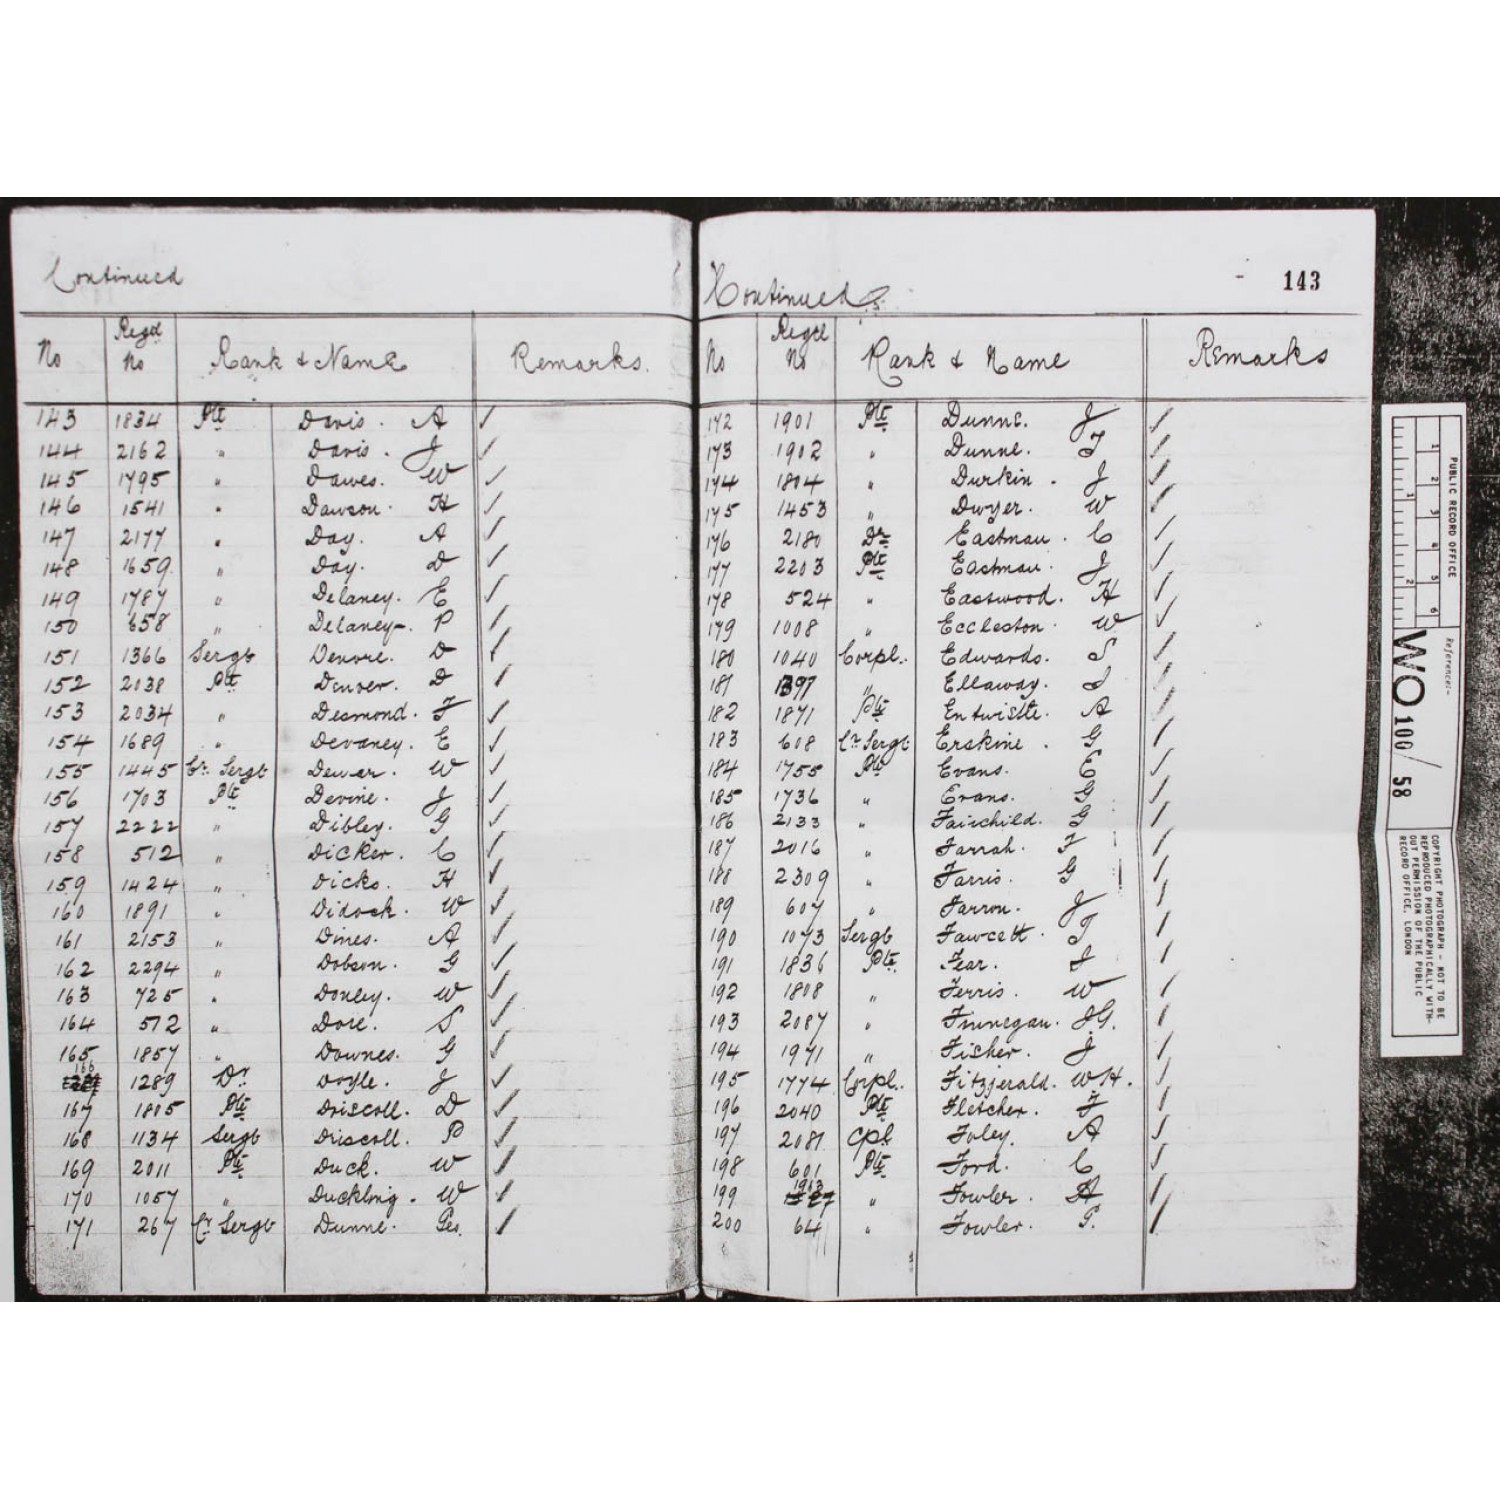 Continued
No Regtl No Rank & Name Remarks.
143 1834 Pte Davis. A ✓
144 2162 " Davis. J ✓
145 1795 " Dawes. W ✓
146 1541 " Dawson. H ✓
147 2177 " Day. A ✓
148 1659 " Day. D ✓
149 1787 " Delaney. E ✓
150 658 " Delaney. P ✓
151 1366 Sergt Denore. D ✓
152 2038 Pte Denver. D ✓
153 2034 " Desmond. F ✓
154 1689 " Devaney. E ✓
155 1445 Cr. Sergt Dewar. W ✓
156 1703 Pte Devine. J ✓
157 2222 " Dibley. G ✓
158 512 " Dicker. C ✓
159 1424 " Dicks. H ✓
160 1891 " Didock. W ✓
161 2153 " Dines. A ✓
162 2294 " Dobson. G ✓
163 725 " Donley. W ✓
164 572 " Dore. S ✓
165 1857 " Downes. G ✓
166 1289 Dr Doyle. J ✓
167 1805 Pte Driscoll. D ✓
168 1134 Sergt Driscoll. P ✓
169 2011 Pte Duck. W ✓
170 1057 " Duckling. W ✓
171 267 Cr Sergt Dunne. Geo. ✓
Continued
143
No Regtl No Rank & Name Remarks
172 1901 Pte Dunne. J ✓
173 1902 " Dunne. T ✓
174 1804 " Durkin. J ✓
175 1453 " Dwyer. W ✓
176 2180 Dr Eastman. C ✓
177 2203 Pte Eastman. J ✓
178 524 " Eastwood. H ✓
179 1008 " Eccleston. W ✓
180 1040 Corpl. Edwards. S ✓
181 1397 " Ellaway. J ✓
182 1871 Pte Entwistle. A ✓
183 608 Cr Sergt Erskine. G ✓
184 1755 Pte Evans. E ✓
185 1736 " Evans. G ✓
186 2133 " Fairchild. G ✓
187 2016 " Farrah. F ✓
188 2309 " Farris. G ✓
189 607 " Farron. J ✓
190 1073 Sergt Fawcett. T ✓
191 1836 Pte. Fear. J ✓
192 1808 " Ferris. W ✓
193 2087 " Finnegan. JG. ✓
194 1971 " Fisher. J ✓
195 1774 Corpl. Fitzjerald. WH. ✓
196 2040 Pte Fletcher. F ✓
197 2081 Cpl Foley. A ✓
198 601 Pte Ford. C ✓
199 1963 " Fowler. A ✓
200 64 " Fowler. G. ✓
PUBLIC RECORD OFFICE
1 2 3 4 5 6
1 2
Reference:-
WO 100/58
COPYRIGHT PHOTOGRAPH - NOT TO BE
REPRODUCED PHOTOGRAPHICALLY WITH-
OUT PERMISSION OF THE PUBLIC
RECORD OFFICE, LONDON